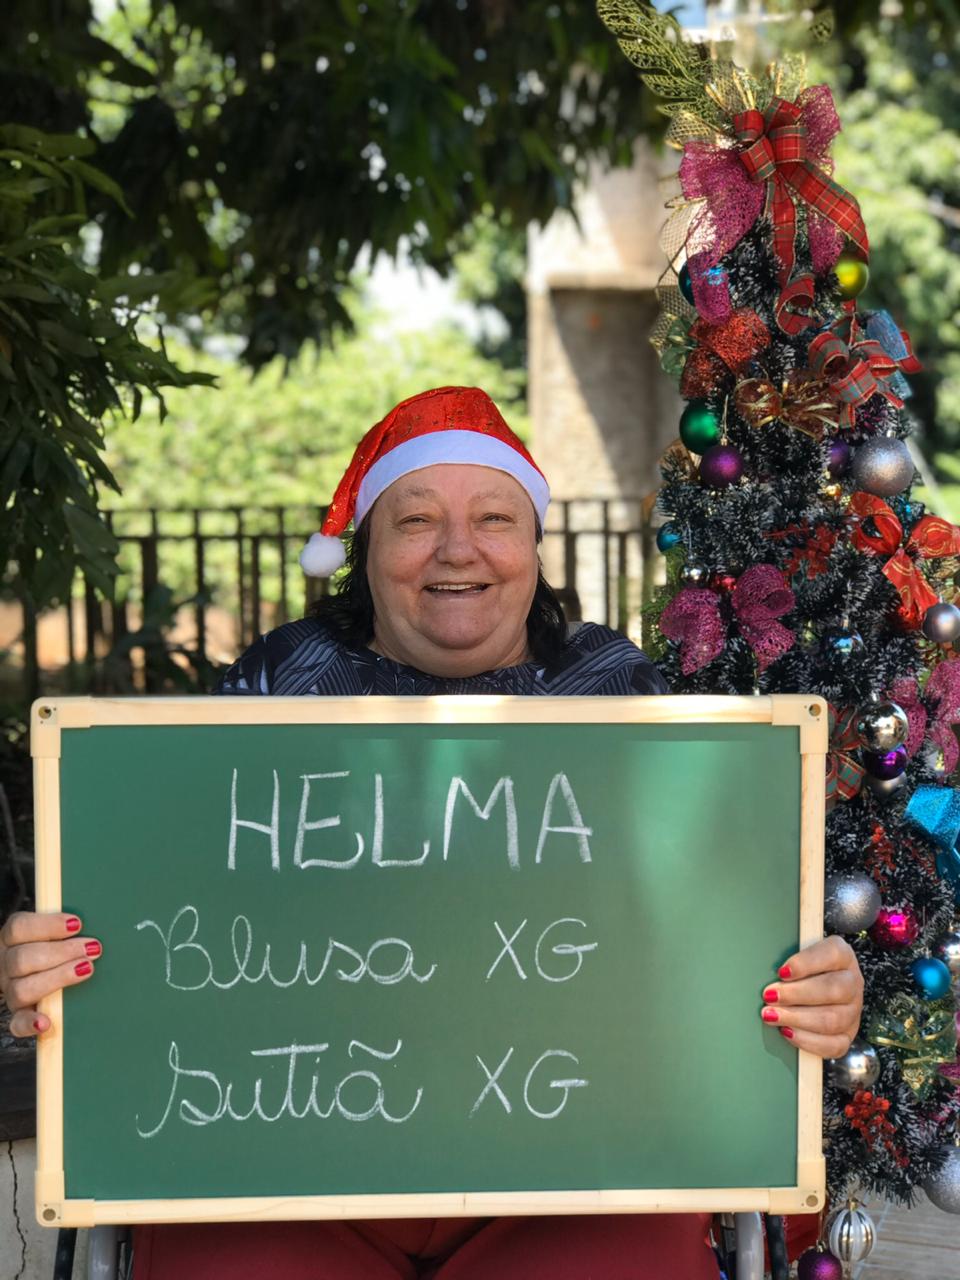 HELMA
Blusa XG
Sutiã XG